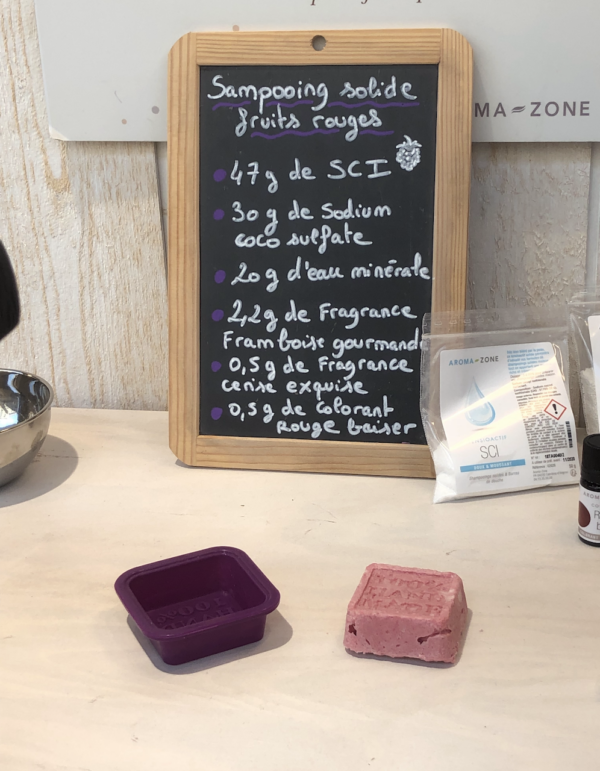 MA ZONE
Sampooing solide
fruits rouges
47g de SCI
30 g de Sodium
coco sulfate
20 g d'eau minérale
2,2g de Fragrance
Framboise gourmande
0,5g de Fragrance
cerise exquise
0,5g de Colorant
Rouge baiser
AROMA ZONE
SCI